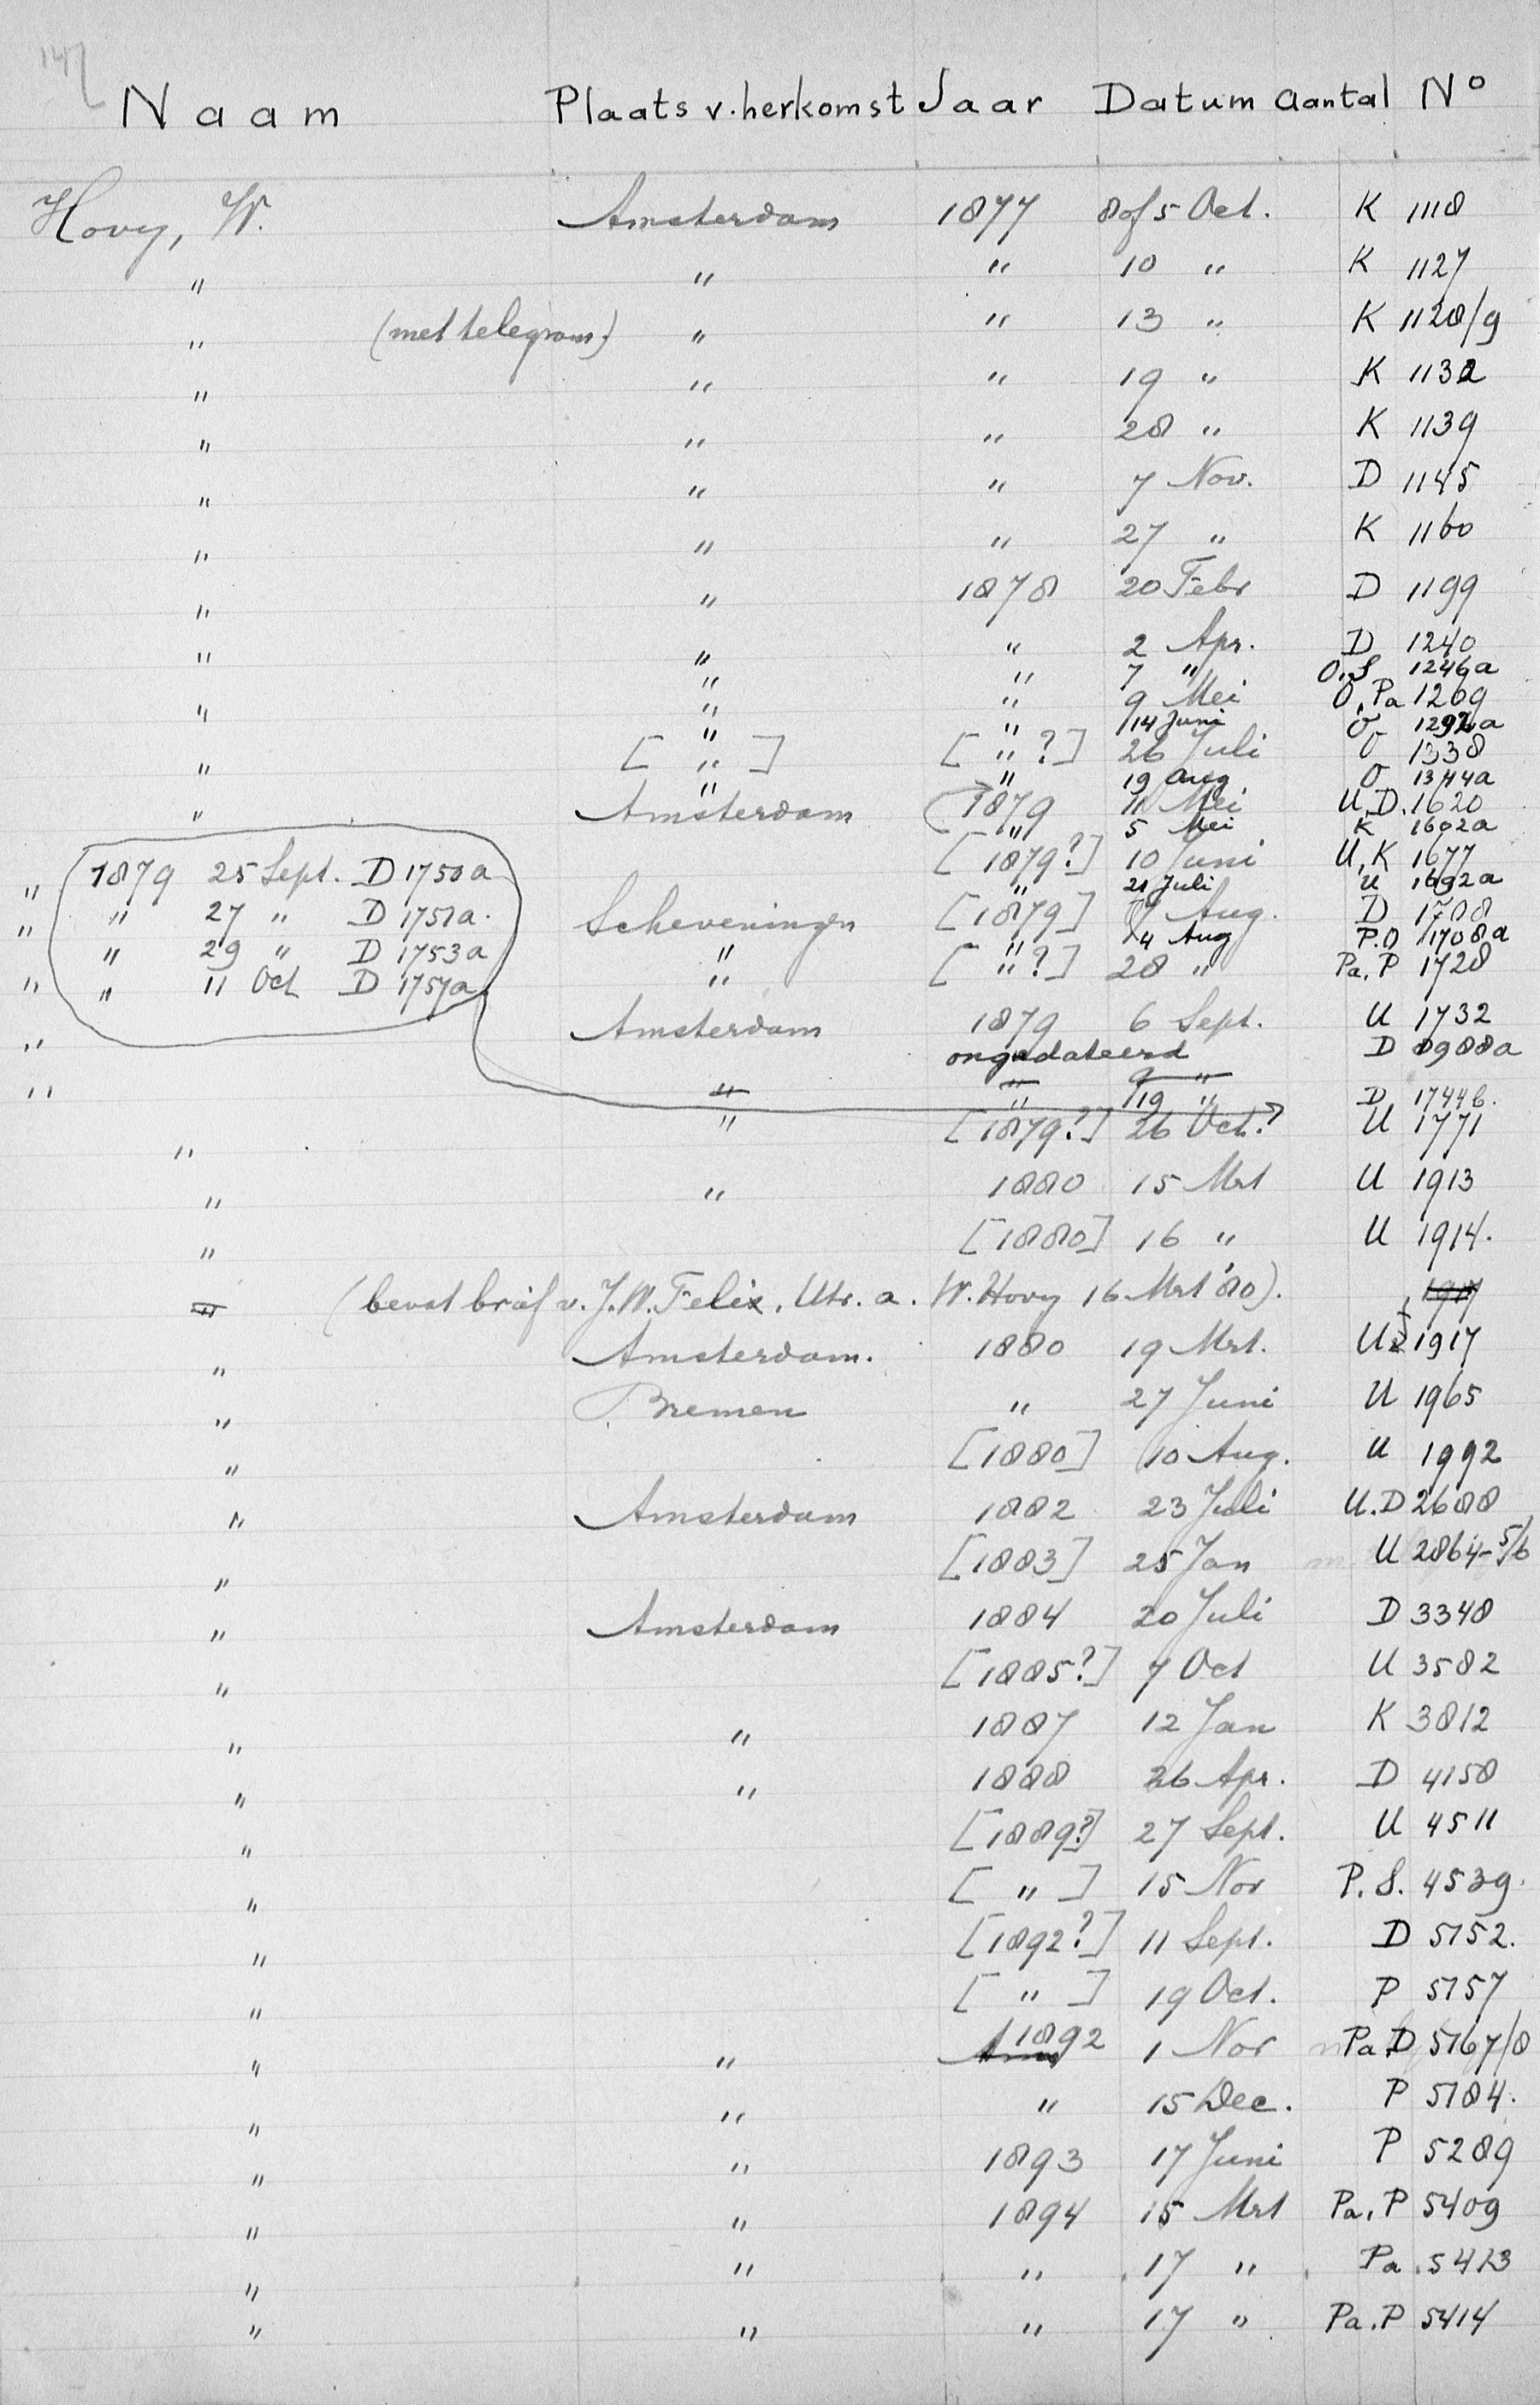 147
Naam Plaats v. herkomst Jaar Datum Aantal No
Hovy, W. Amsterdam 1877 8 of 5 Oct. K 1118
" " " 10 " K 1127
" (met telegram) " " 13 " K 1128/9
" " " 19 " K 1132
" " " 28 " K 1139
" " " 7 Nov. D 1145
" " " 27 " K 1160
" " 1878 20 Febr D 1199
" " " 2 Apr. D 1240
" " 7 " O.S 1246a
" " " 9 Mei O, Pa 1269
" " 14 Juni O 1292a
" [ " ] [ " ?] 26 Juli O 1338
" " 19 Aug O 1344a
" Amsterdam 1879 11 Mei U.D. 1620
" 5 Mei K 1602a
[1879?] 10 Juni U, K 1677
" 1879 25 Sept. D 1750a
" 21 Juli U 1692a
" " 27 " D 1751a.
Scheveningen [1879] 7 Aug. D 1708
14 Aug P.O 1708a
" 29 " D 1753a
" [ " ?] 28 " Pa. P 1728
" " 11 Oct D 1757a
" Amsterdam 1879 6 Sept. U 1732
ongedateerd D 8988a
" " " 9 "
" 19 " D 1744b.
" " [1879?] 26 Oct.? U 1771
" " 1880 15 Mrt U 1913
" [1880] 16 " U 1914.
" (bevat brief v. J.W. Felix, Utr. a. W. Hovy 16 Mrt '80). 1917
" Amsterdam. 1880 19 Mrt. U 1917
" Bremen " 27 Juni U 1965
" [1880] 10 Aug. U 1992
" Amsterdam 1882 23 Juli U.D 2688
" [1883] 25 Jan U 2864-5/6
" Amsterdam 1884 20 Juli D 3348
" [1885?] 7 Oct U 3582
" " 1887 12 Jan K 3812
" " 1888 26 Apr. D 4158
" [1889?] 27 Sept. U 4511
" [ " ] 15 Nov P. S. 4539.
" [1892?] 11 Sept. D 5152.
" [ " ] 19 Oct. P 5157
" " 1892 1 Nov Pa. D 5167/8
" " " 15 Dec. P 5184.
" " 1893 17 Juni P 5289
" " 1894 15 Mrt Pa. P 5409
" " " 17 " Pa. 5413
" " " 17 " Pa. P 5414